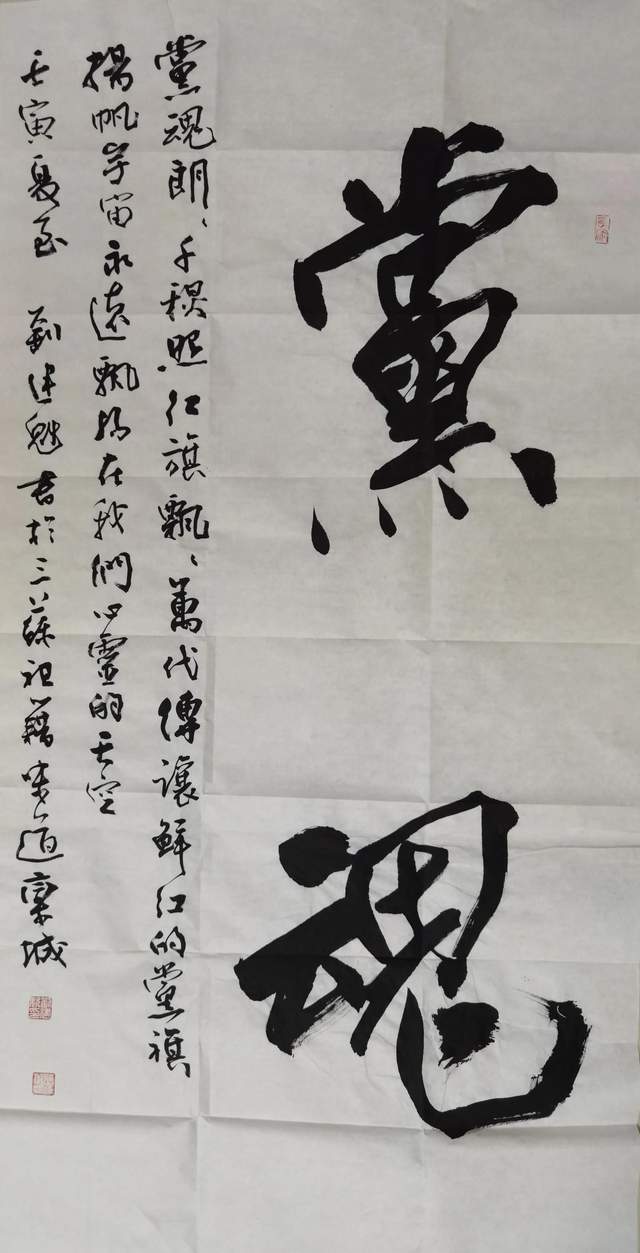 黨魂
黨魂朗朗千穐照紅旗飄飄萬代傳讓鮮紅的黨旗
揚帆宇宙永遠飄揚在我們心靈的天空
壬寅夏至 劉建魁書於三蘇祖籍味道欒城